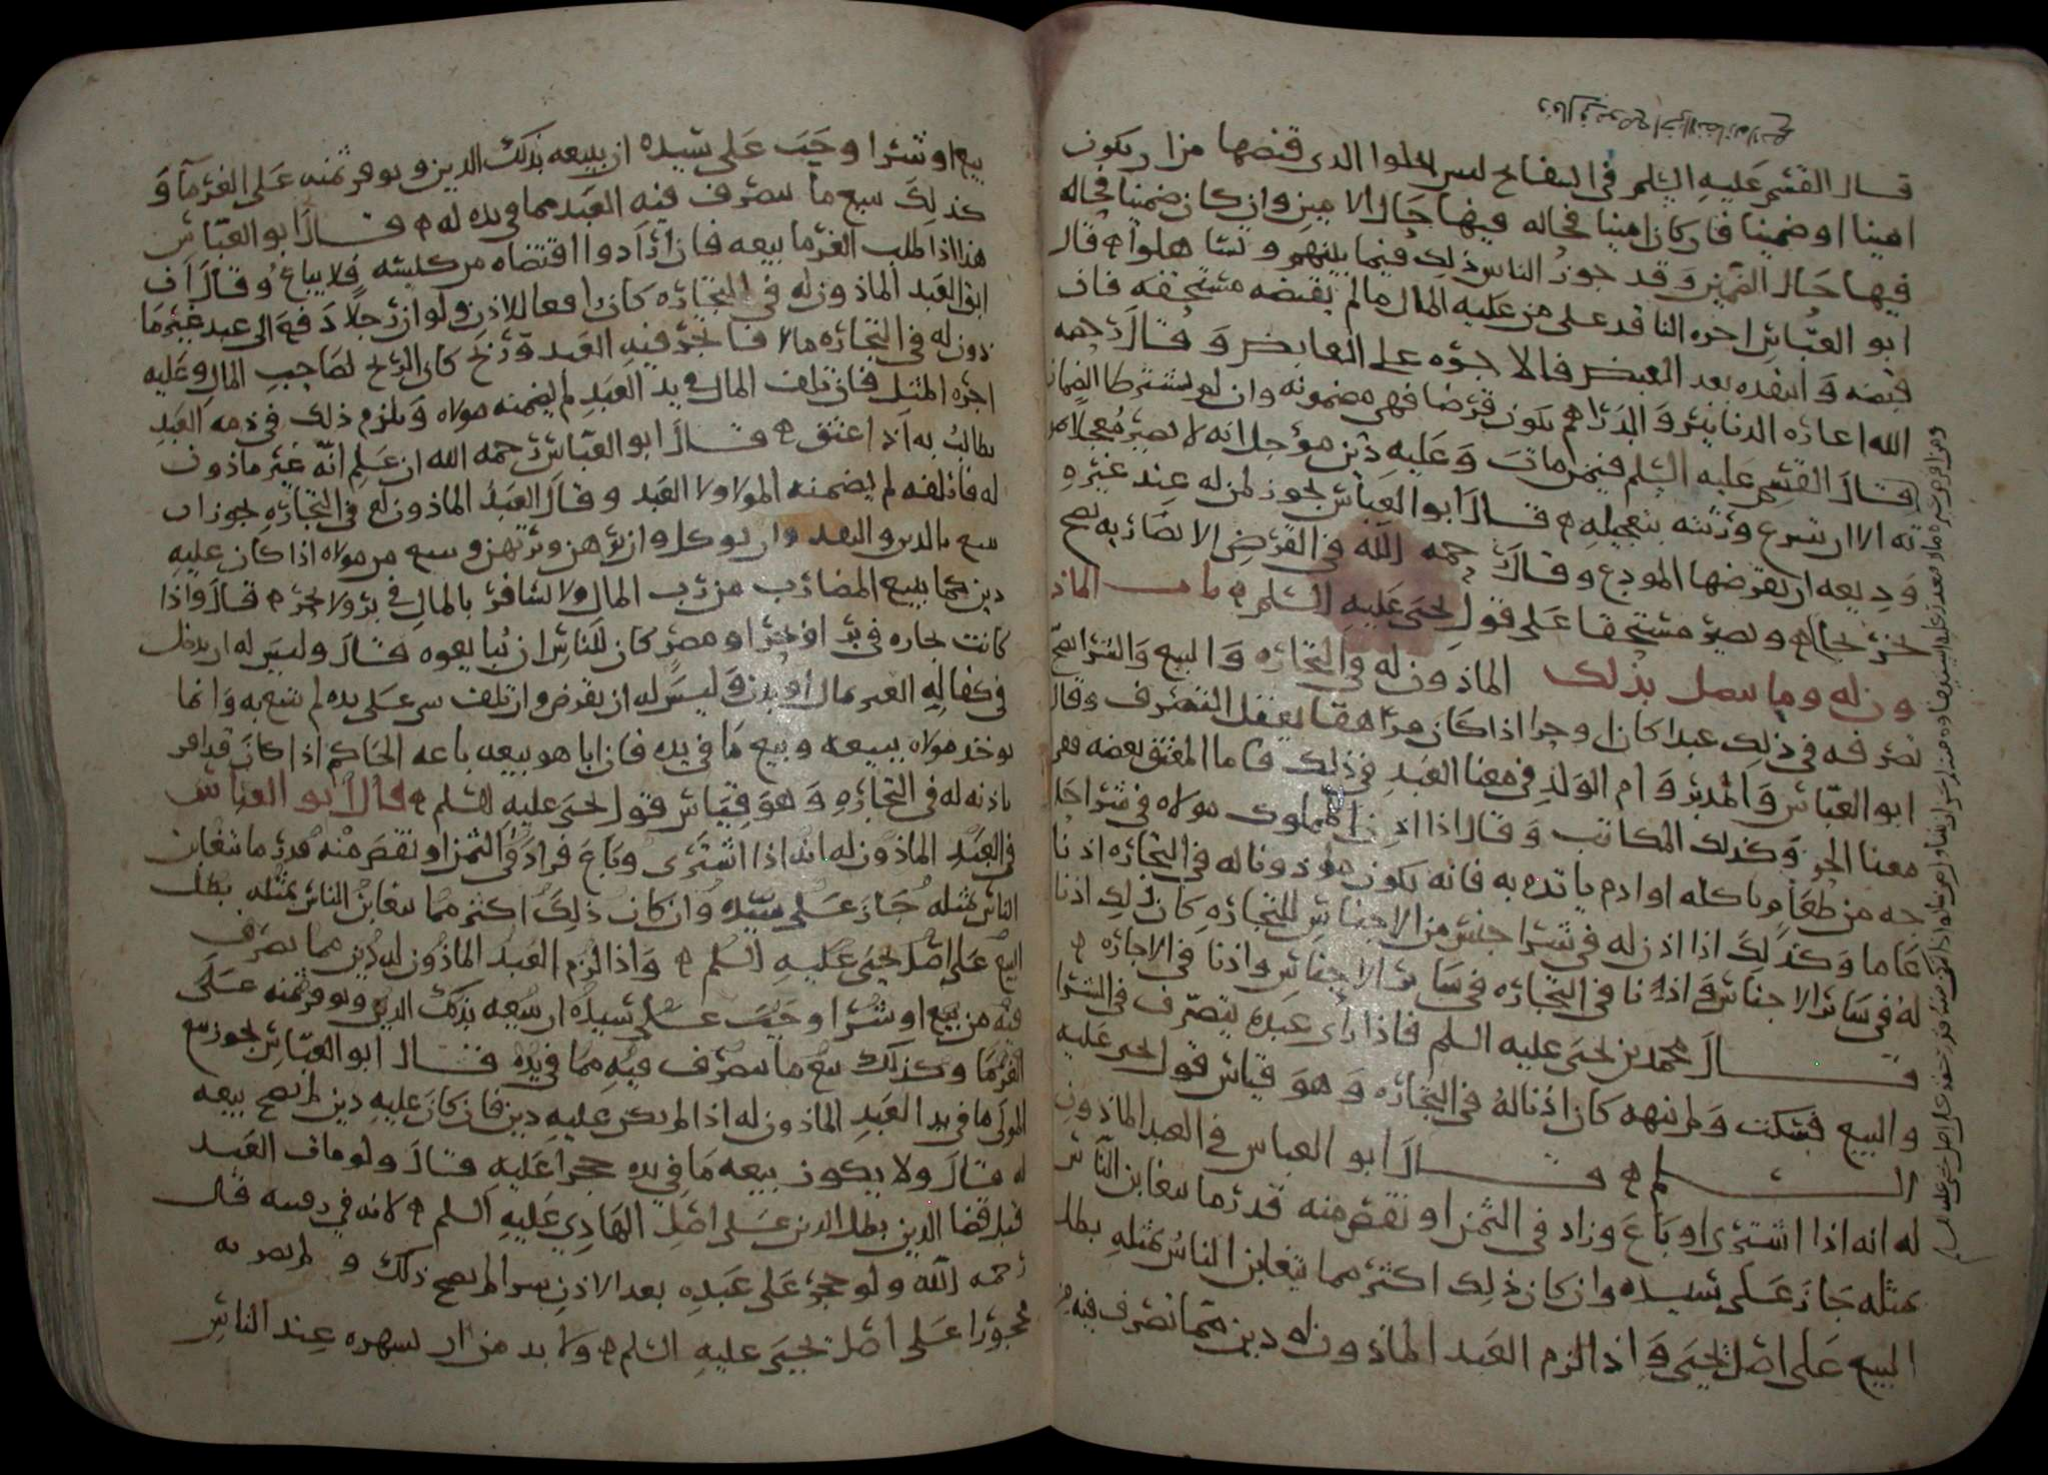 قال القسم عليه السلم في السفاتج ليس يخلوا الذي قبضها من ان يكون
امينا او ضمينا فان كان امينا فحاله فيها حال الامين وان كان ضمينا فحاله
فيها حال الضمين وقد جوز الناس ذلك فيما بينهم وتساهلوا قال
ابو العباس اجره الناقد على من عليه المال ما لم يقبضه مستحقه فان
قبضه وانتقده بعد القبض فالاجره على القابض وقال رحمه
الله اعاره الدنانير والدراهم يكون قرضا فهي مضمونه وان لم يشترط الضمان
قال القسم عليه السلم فيمن مات وعليه دين مؤجل انه لا يصير معجلا بمو
ته الا ان تبرع ورثته بتعجيله قال ابو العباس يجوز لمن له عند غيره
وديعه ان يقرضها المودع وقال رحمه الله في القرض الا نضاربه يصح
على قول يحيى عليه السلم باب الماذ
ون له وما يتصل بذلك الماذون له في التجاره والبيع والشرا يصح
تصرفه في ذلك عبدا كان او حرا اذا كان مراهقا يعقل التصرف وقال
ابو العباس والمدبر وام الولد في معنا العبد في ذلك فاما المعتق بعضه فهو
معنا الحر وكذلك المكاتب وقال اذا اذن المملوك مولاه في شرا حا
جه من طعام ياكله او ادم ياتدم به فانه يكون ماذونا له في التجاره اذنا
عاما وكذلك اذا اذن له في شرا جنس من الاجناس للتجاره كان ذلك اذنا
له في سائر الاجناس واذا اذنا في التجاره في سائر الاجناس واذنا في الاجاره
قال محمد بن يحيى عليه السلم فاذا راى عبده يتصرف في الشرا
والبيع فسكت ولم ينهه كان اذنا له في التجاره وهو قياس قول يحيى عليه
السلم قال ابو العباس في العبد الماذون
له انه اذا اشترى او باع وزاد في الثمن او نقص منه قدر ما يتغابن الناس
بمثله جاز على سيده وان كان ذلك اكثر مما يتغابن الناس بمثله بطل
البيع على اصل يحيى واذا لزم العبد الماذون له دين مما تصرف فيه من
بيع او شرا وجب على سيده ان يبيعه بذلك الدين ويوفر ثمنه على الغرما و
كذلك يبيع ما يتصرف فيه العبد مما في يده له قال ابو العباس
هذا اذا طلب الغرما بيعه فان ارادوا اقتضاه من كسبه فلا يباع وقال اذا
ابق العبد الماذون له في التجاره كان رافعا للاذن ولو ان رجلا دفع الى عبد غير ما
ذون له في التجاره مالا فاتجر فيه العبد وربح كان الربح لصاحب المال وعليه
اجره المثل فان تلف المال في يد العبد لم يضمنه مولاه ويلزم ذلك في ذمه العبد
يطالب به اذا اعتق قال ابو العباس رحمه الله ان علم انه غير ماذون
له فاتلفه لم يضمنه المولا ولا العبد وقال العبد الماذون له في التجاره يجوز ان
يبيع بالدين والنقد وان يوكل وان يرهن ويرتهن ويبيع من مولاه اذا كان عليه
دين كما يبيع المضارب من رب المال ولا يسافر بالمال في بر ولا بحر قال واذا
كانت تجاره في بر او بحر او مصر كان للناس ان يبايعوه قال وليس له ان يدخل
في كفاله الغير بمال او بدن وليس له ان يقرض وان تلف شي على يده لم يتبع به وانما
يوخذ مولاه ببيعه وبيع ما في يده فان ابا هو بيعه باعه الحاكم اذا كان قد اقر
باذنه له في التجاره وهو قياس قول يحيى عليه السلم قال ابو العباس
في العبد الماذون له انه اذا اشترى وباع فزاد في الثمن او نقص منه قدر ما يتغابن
الناس بمثله جاز على سيده وان كان ذلك اكثر مما يتغابن الناس بمثله بطل
البيع على اصل يحيى عليه السلم واذا لزم العبد الماذون له دين مما تصرف
فيه من بيع او شرا وجب على سيده ان يبيعه بذلك الدين ويوفر ثمنه على
الغرما وكذلك بيع ما يتصرف فيه مما في يده قال ابو العباس يجوز بيع
المولى ما في يد العبد الماذون له اذا لم يكن عليه دين فان كان عليه دين لم يصح بيعه
له قال ولا يكون بيعه ما في يده حجرا عليه قال ولو مات العبد
قبل قضا الدين بطل الدين على اصل الهادي عليه السلم لانه في رقبته قال
رحمه الله ولو حجر على عبده بعد الاذن سرا لم يصح ذلك ولم يصر به
محجورا على اصل يحيى عليه السلم ولا بد من ان يشهره عند الناس